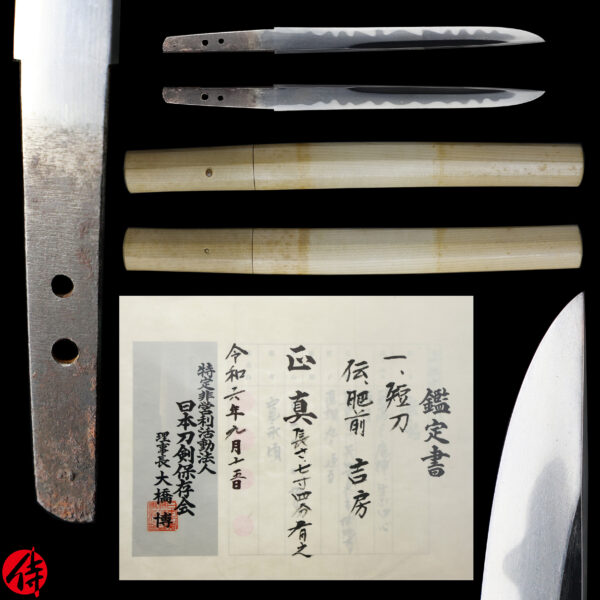 鑑定書
一、短刀
伝、肥前 吉房
正真
長さ、七寸四分有之
令和六年九月十五日
特定非営利活動法人
日本刀剣保存会
理事長 大橋 博
侍